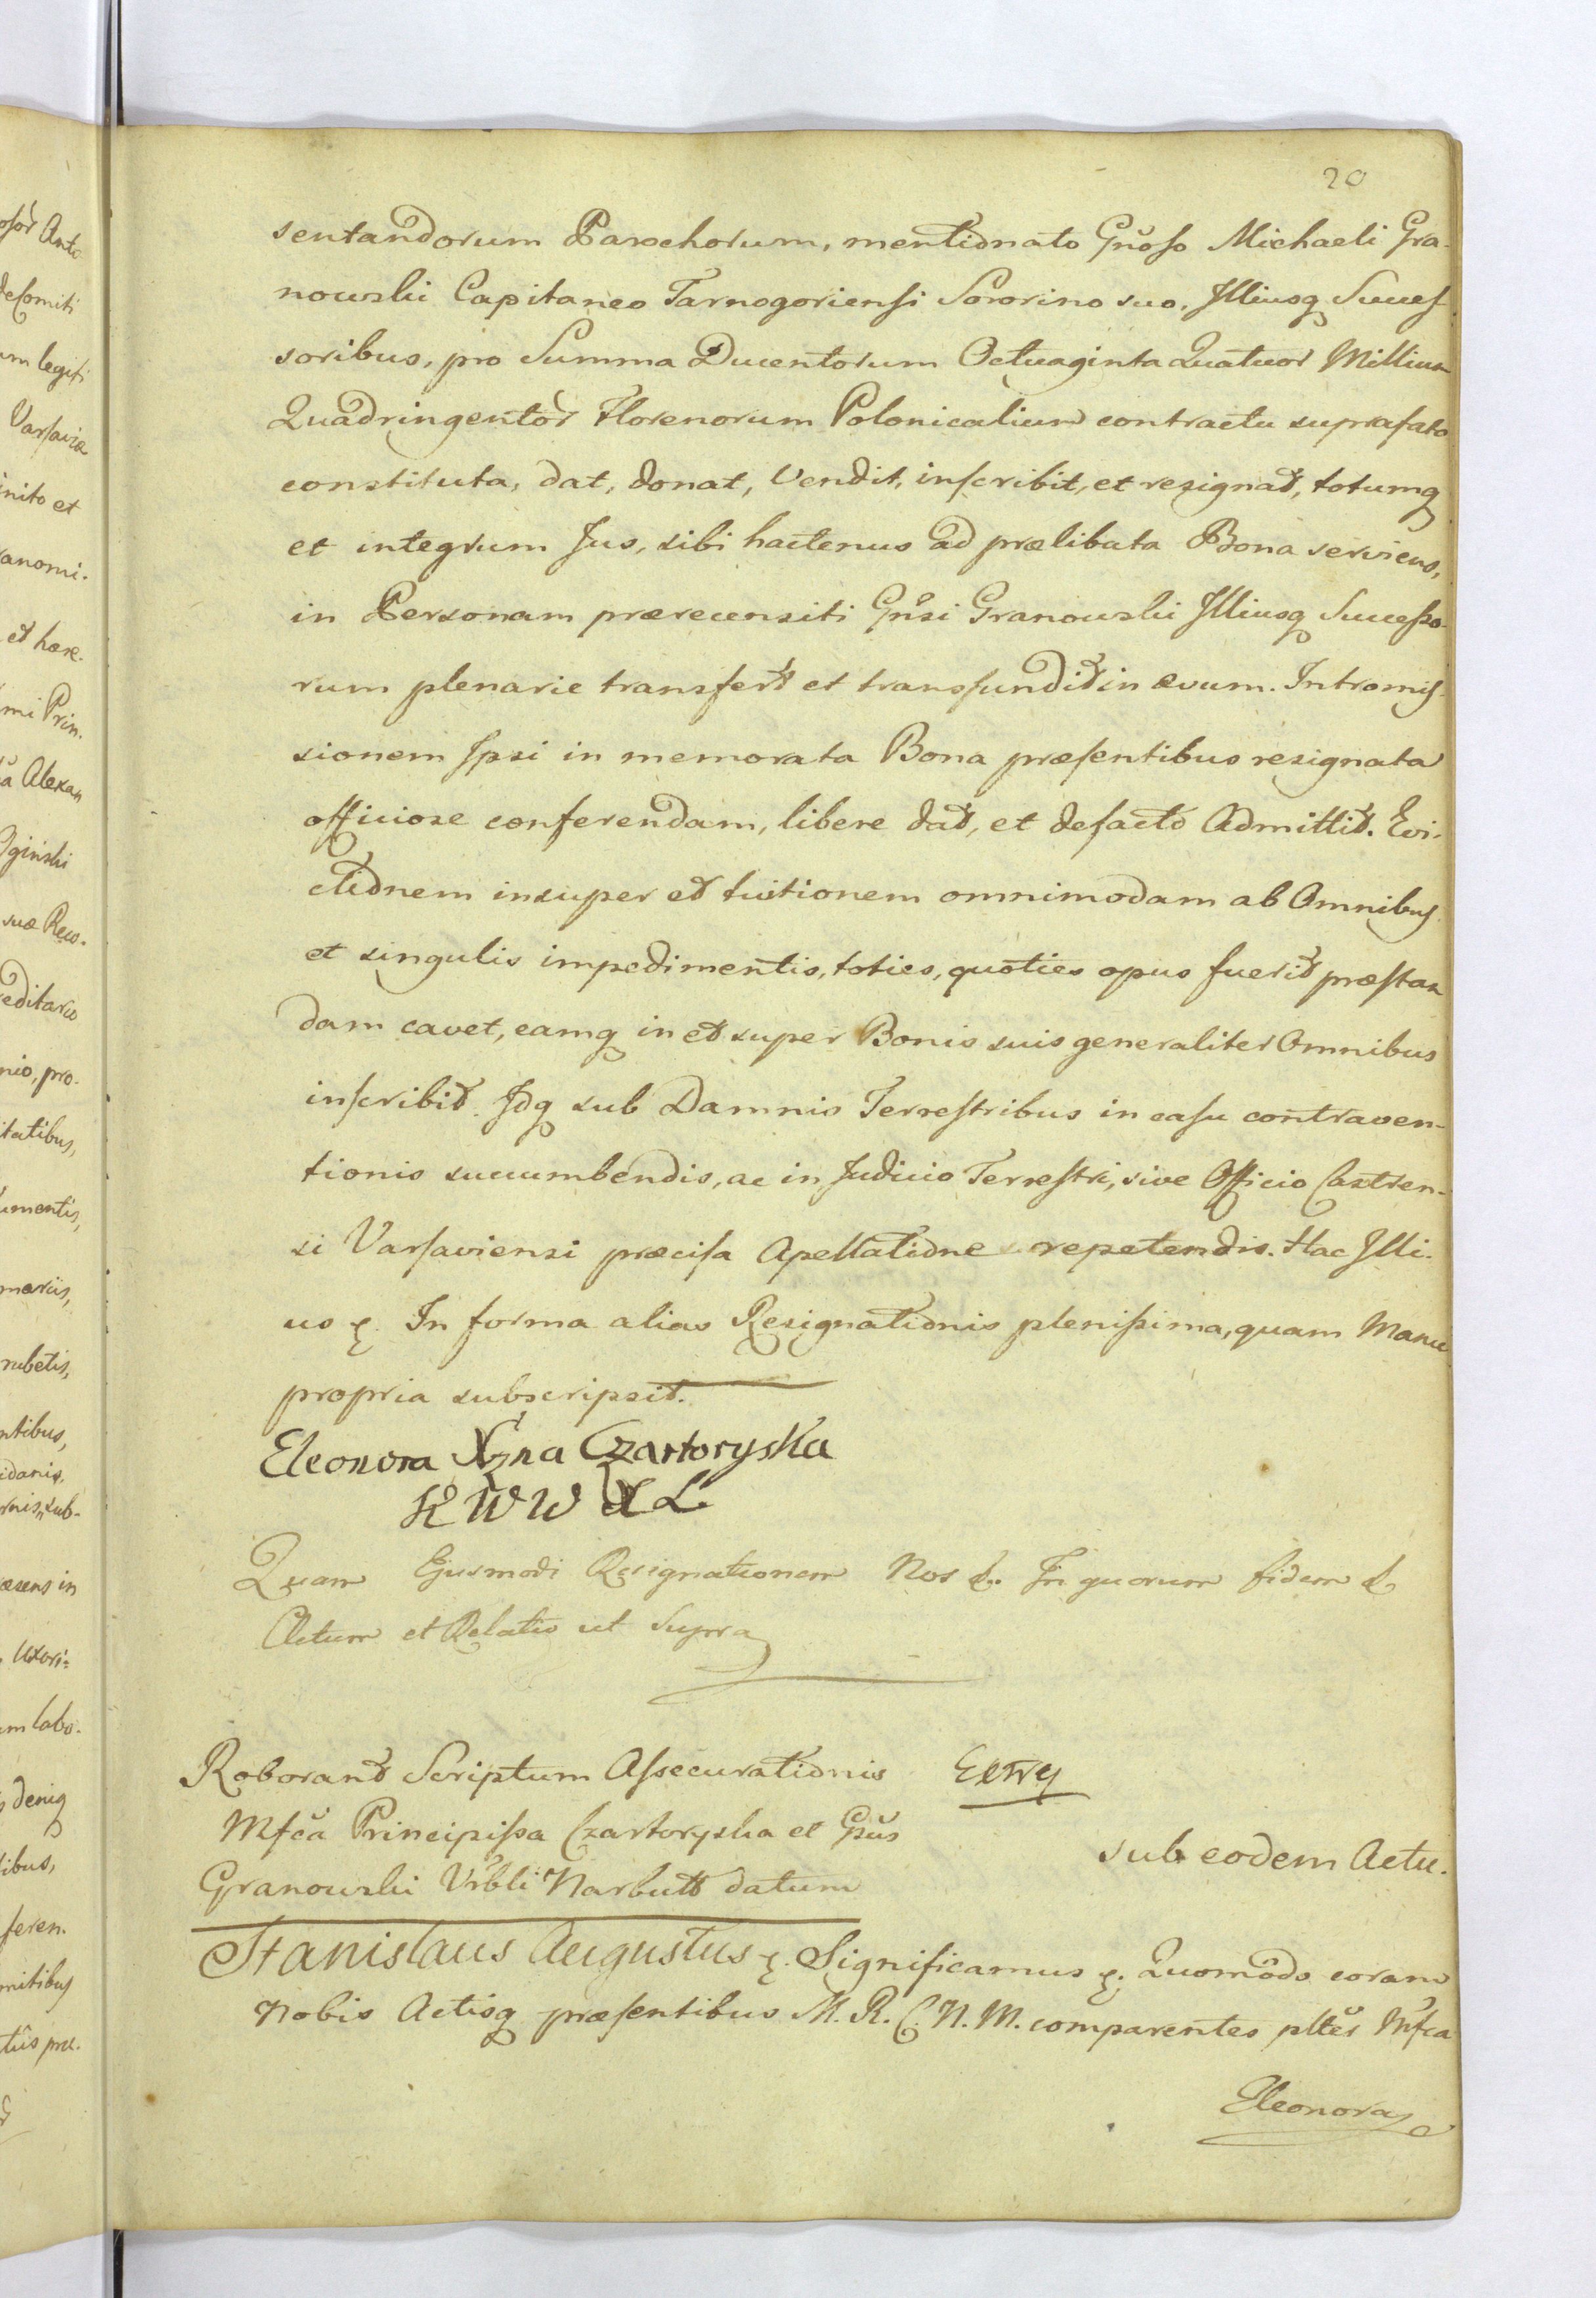 20
sentandorum Parochorum, mentionato Gnoso Michaeli Gra-
nowski Capitaneo Tarnogoriensi Sororino suo, Illiusq Succes-
soribus, pro Summa Ducentorum Octuaginta Quatuor Millium
Quadringentor Florenorum Polonicalium contractu suprafato
constituta, dat, donat, Vendit, inscribit, et resignat, totumq
et integrum Jus, sibi hactenus ad prælibata Bona serviens,
in Personam prærecensiti Gnsi Granowski Illiusq Successo-
rum plenarie transfert et transfundit in ævum. Intromis-
sionem Ipsi in memorata Bona præsentibus resignata
officiose conferendam, libere dat, et defacto Admittit. Evi-
ctionem insuper et tuitionem omnimodam ab Omnibus
et singulis impedimentis, toties, quoties opus fuerit præstan
dam cavet, eamq in et super Bonis suis generaliter Omnibus
inscribit. Idq sub Damnis Terrestribus in casu contraven-
tionis succumbendis, ac in Judicio Terrestri, sive Officio Castren-
si Varsaviensi præcisa Apellatione repetendis. Hac Illi-
us &. In forma alias Resignationis plenissima, quam Manu
propria subscripsit.
Eleonora Xzna Czartoryska
K W W X L
Quam Ejusmodi Resignationem Nos &. In quorum fidem &
Actum et Relatio ut Supra
Roborant Scriptum Assecurationis
Mfca Principissa Czartoryska et Gnus
Granowski Vrbli Narbutt datum
sub eodem Actu.
Stanislaus Augustus &. Significamus &. Quomodo coram
Nobis Actisq præsentibus M. R. C. N. M. comparentes plter Mfca
Eleonora